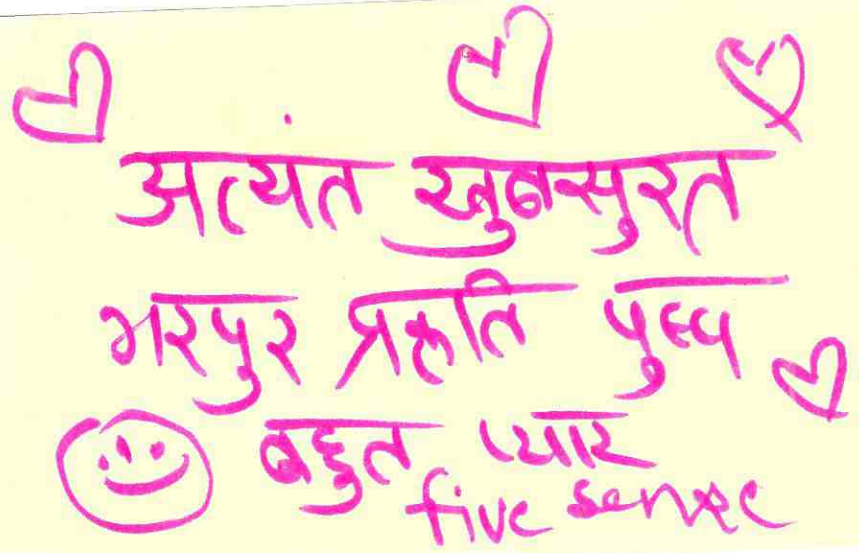 अत्यंत खुबसुरत
भरपुर प्रकृति पुष्प
बहुत प्यार
five sense